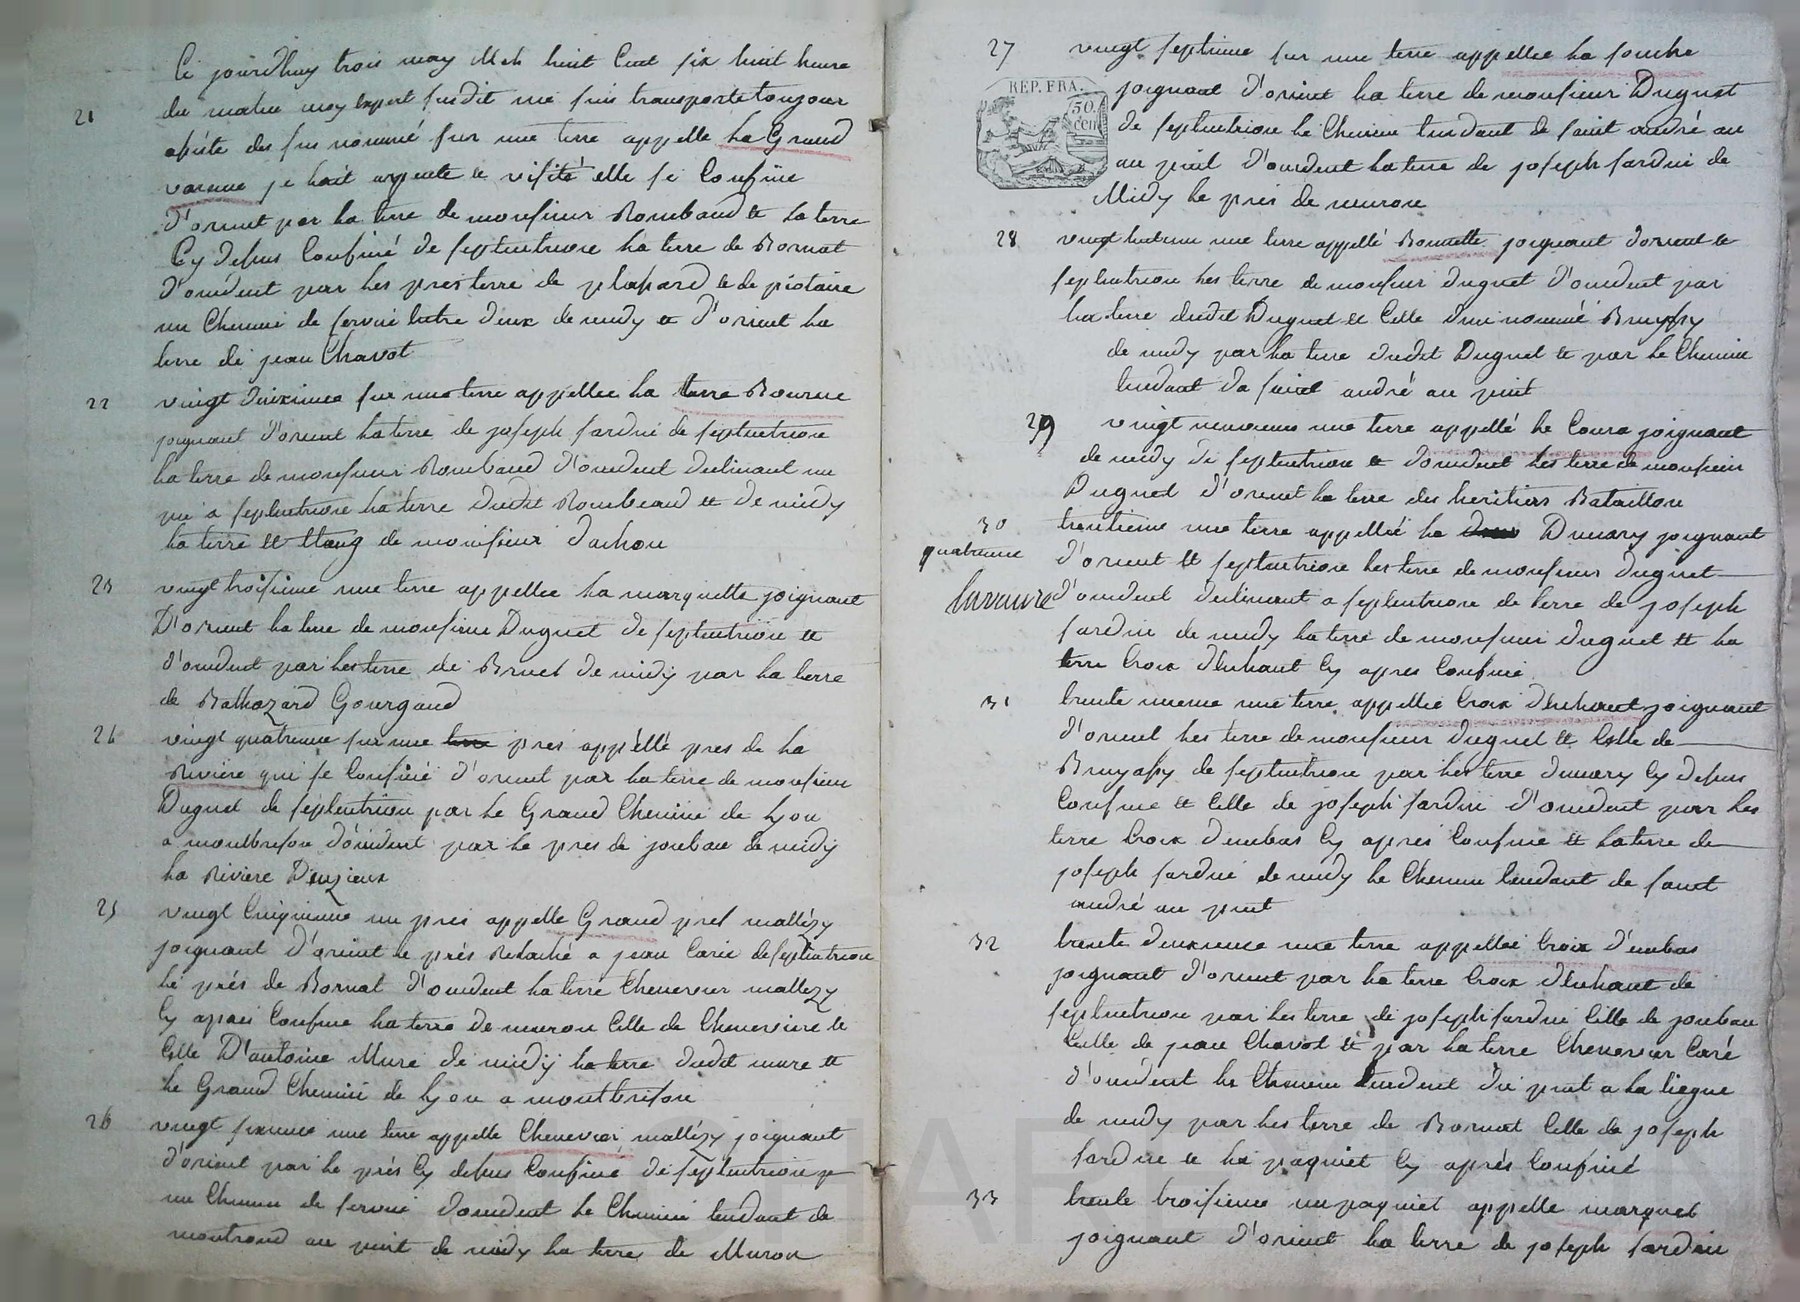 Ce jourdhuy trois may Mil huit Cent six huit heure
21
du matin moy Expert susdit me suis transporte toujour
assiste des sus nommé sur une terre appelle La Grand
varenne je lait arpente et visité elle se Confine
d'orient par La terre de monsieur Rombaud et La terre
Cy desus Confiné de septentrion La terre de Bornat
d'ouident par Les pres terre de plapard et de piotaire
un Chemin de servis Entre deux de midy et d'orient La
terre de jean Chavot
22
vingt deuxieme sur une terre appellee La terre Bourue
joignant d'orient La terre de joseph Sardin de septentrion
La terre de monsieur Rombaud d'ouident declinant un
peu a septentrion La terre dudit Rombeaud et de midy
La terre et Etang de monsieur dachon
23
vingt troisieme une terre appellee La marquette joignant
D'orient La terre de monsieur Duguet de septentrion et
d'ouident par Les terre de Bruel de midy par La terre
de Balthazard Gourgaud
24
vingt quatrieme sur une terre pres appéllé pres de La
Riviere qui se Confine d'orient par La terre de monsieur
Duguet de septentrion par Le Grand Chemin de Lyon
a montbrison d'ouident par Le pres de jouban de midy
La Riviere Danzieux
25
vingt Cinquieme un pres appelle Grand prel mallézy
joignant d'orient Le prés Retaché a jean Carre de septentrion
Le prés de Bornat d'ouident La terre Chenevier mallezy
Cy apres Confine La terre de muron Celle de Cheneviere et
Celle D'antoine Mure de midy La terre dudit mure et
Le Grand Chemin de Lyon a montbrison
26
vingt sixieme une terre appelle Chenevier mallézy joignant
d'orient par Le prés Cy desus Confiné de septentrion p
un Chemin de servis d'ouident Le Chemin tendant de
montrond au puit de midy La terre de Muron
27
vingt septieme sur une terre appellee La souche
REP. FRA.
50.
cen
joignant d'orient La terre de monsieur Duguet
de septentrion Le Chemin tendant de saint andré au
au puit d'ouident La terre de joseph Sardin de
Midy Le prés de muron
28
vingt huitieme une terre appellé Bonnette joignant dorient et
septentrion Les terre de monsieur duguet d'ouident par
La terre dudit Duguet et Celle du nommé Bruyssy
de midy par La terre dudit Duguet et par Le Chemin
tendant da saint andré au puit
29
vingt neuvieme une terre appellé Le Coura joignant
de midy de septentrion et douident Les terre de monsieur
Duguet d'orient La terre des heritiers Bataillon
30
trentieme une terre appellée La Dumary joignant
quatrieme
d'orient et septentrion Les terre de monsieur duguet
Lavaure
d'ouident declinant a septentrion de terre de joseph
Sardin de midy La terre de monsieur duguet et La
terre Croix denhaut Cy apres Confine
31
trente unieme une terre appellée Croix denhaut joignant
d'orient Les terre de monsieur duguet et Celle de
Bruyassy de septentrion par Les terre dumary Cy desus
Confine et Celle de joseph Sardin d'ouident par Les
terre Croix denbas Cy apres Confine et La terre de
joseph Sardin de midy Le Chemin tendant de saint
andré au puit
32
trente deuxieme une terre appellée Croix d'enbas
joignant d'orient par La terre Croix denhaut de
septentrion par Les terre de joseph Sardin Celle de jouban
Celle de jean Chavot et par La terre Chenevier Caré
d'ouident Le Chemin tendent du puit a La liegue
de midy par Les terre de Bornat Celle de joseph
Sardin et Le paquiet Cy aprés Confiné
33
trente troisieme un paquiet appelle marquet
joignant d'orient La terre de joseph Sardin